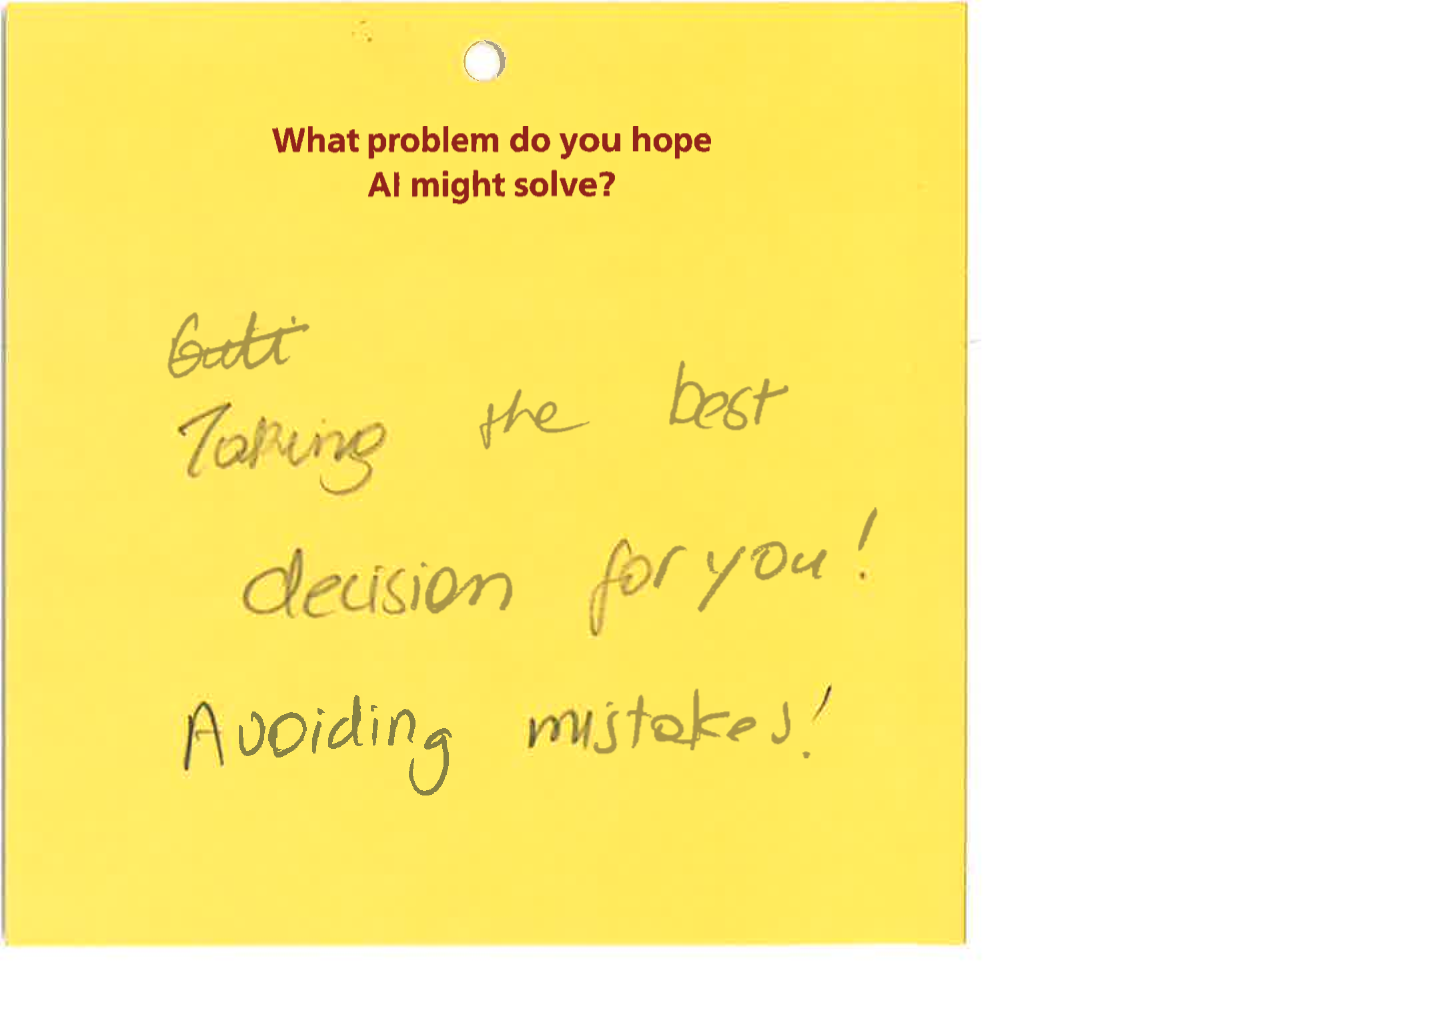 What problem do you hope
AI might solve?
Taking the best
decision for you!
Avoiding mistakes!